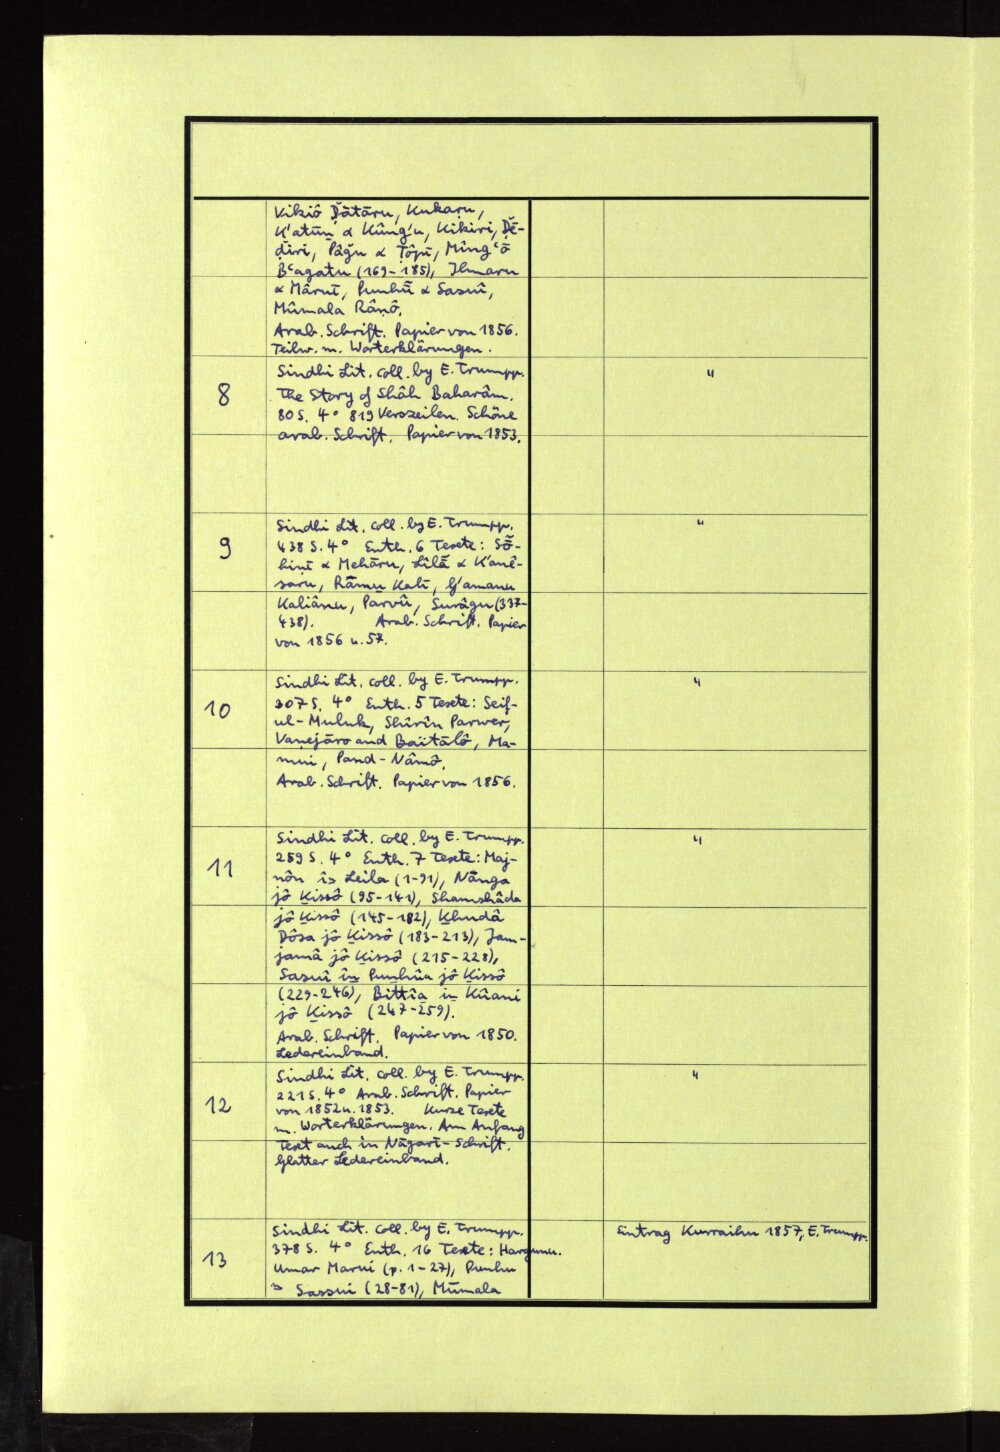 Vikiô Ḍātāru, Kukaru,
K'atūn & Kûng'u, Kikiri, Ḍē-
ḍiri, Pâğu & Tôpī, Mîng'ō
B'agatu (169-185), Ilmaru
& Mâruī, Punhū & Sasuî,
Mûmala Rânô.
Arab. Schrift. Papier von 1856.
Teilw. m. Worterklärungen.
8 Sindhi Lit. coll. by E. Trumpp. "
The Story of Shâh Baharâm.
80 S. 4° 819 Verszeilen. Schöne
arab. Schrift. Papier von 1853.
9 Sindhi Lit. coll. by E. Trumpp. "
438 S. 4° Enth. 6 Texte: Sō-
hiṇī & Mehāru, Lîlā & K'anê-
saru, Rāmu Kalī, G'amanu
Kaliânu, Parvîi, Surâgu (337-
438). Arab. Schrift. Papier
von 1856 u. 57.
10 Sindhi Lit. coll. by E. Trumpp. "
307 S. 4° Enth. 5 Texte: Seif-
ul-Muluk, Shîrîn Parwer,
Vaṇejāro and Baitālô, Ma-
mui, Pand-Nâmô.
Arab. Schrift. Papier von 1856.
11 Sindhi Lit. coll. by E. Trumpp. "
259 S. 4° Enth. 7 Texte: Maj-
nôn în Leila (1-91), Nânga
jô Kissô (95-141), Shamshâda
jô Kissô (145-182), Khudâ
Dôsa jô Kissô (183-213), Jam-
jamâ jô Kissô (215-228),
Sasuî în Punhûa jô Kissô
(229-246), Bittîa in Kûani
jô Kissô (247-259).
Arab. Schrift. Papier von 1850.
Ledereinband.
12 Sindhi Lit. coll. by E. Trumpp. "
221 S. 4° Arab. Schrift. Papier
von 1852 u. 1853. Kurze Texte
m. Worterklärungen. Am Anfang
Text auch in Nāgarī-Schrift.
Glatter Ledereinband.
13 Sindhi Lit. coll. by E. Trumpp. Eintrag Kurraihu 1857, E. Trumpp.
378 S. 4° Enth. 16 Texte: Hargunu.
Umar Marui (p. 1-27), Punhu
Sassui (28-81), Mūmala